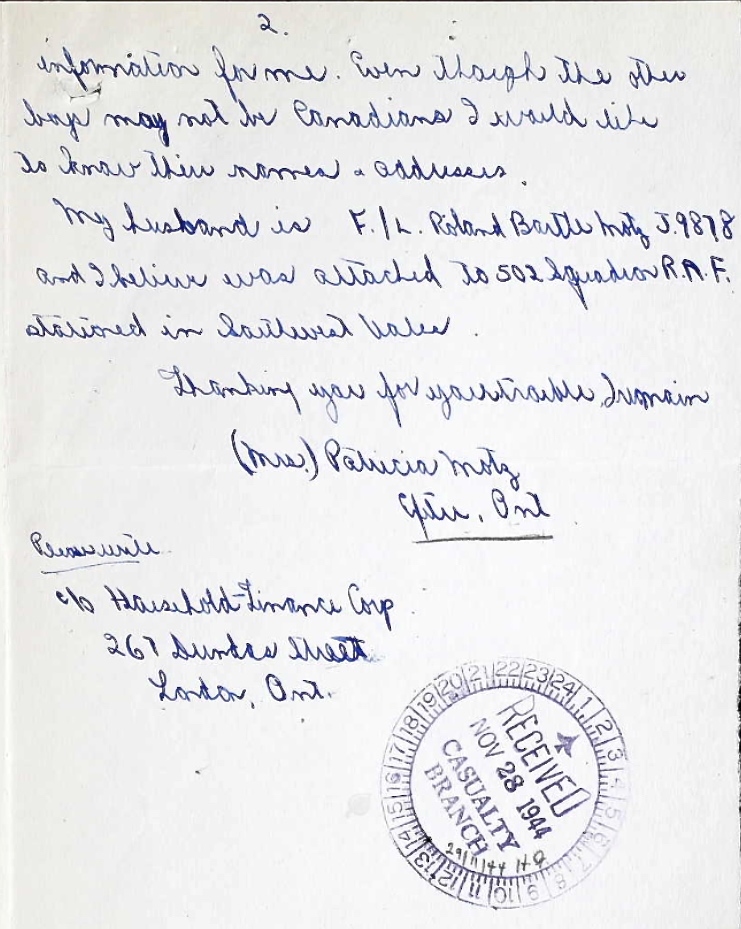 2.
information for me. Even though the other
boys may not be Canadians I would like
to know their names & addresses.
My husband is F./L. Roland Bartle Motz J.9878
and I believe was attached to 502 Squadron R.A.F.
stationed in Southwest Wales.
Thanking you for your trouble, I remain
(Mrs.) Patricia Motz
Ont
Please write
c/o Household Finance Corp.
267 Dundas Street
London, Ont.
1 2 3 4 5 6 7 8 9 10 11 12 13 14 15 16 17 18 19 20 21 22 23 24
RECEIVED
NOV 28 1944
CASUALTY
BRANCH
29/11/44